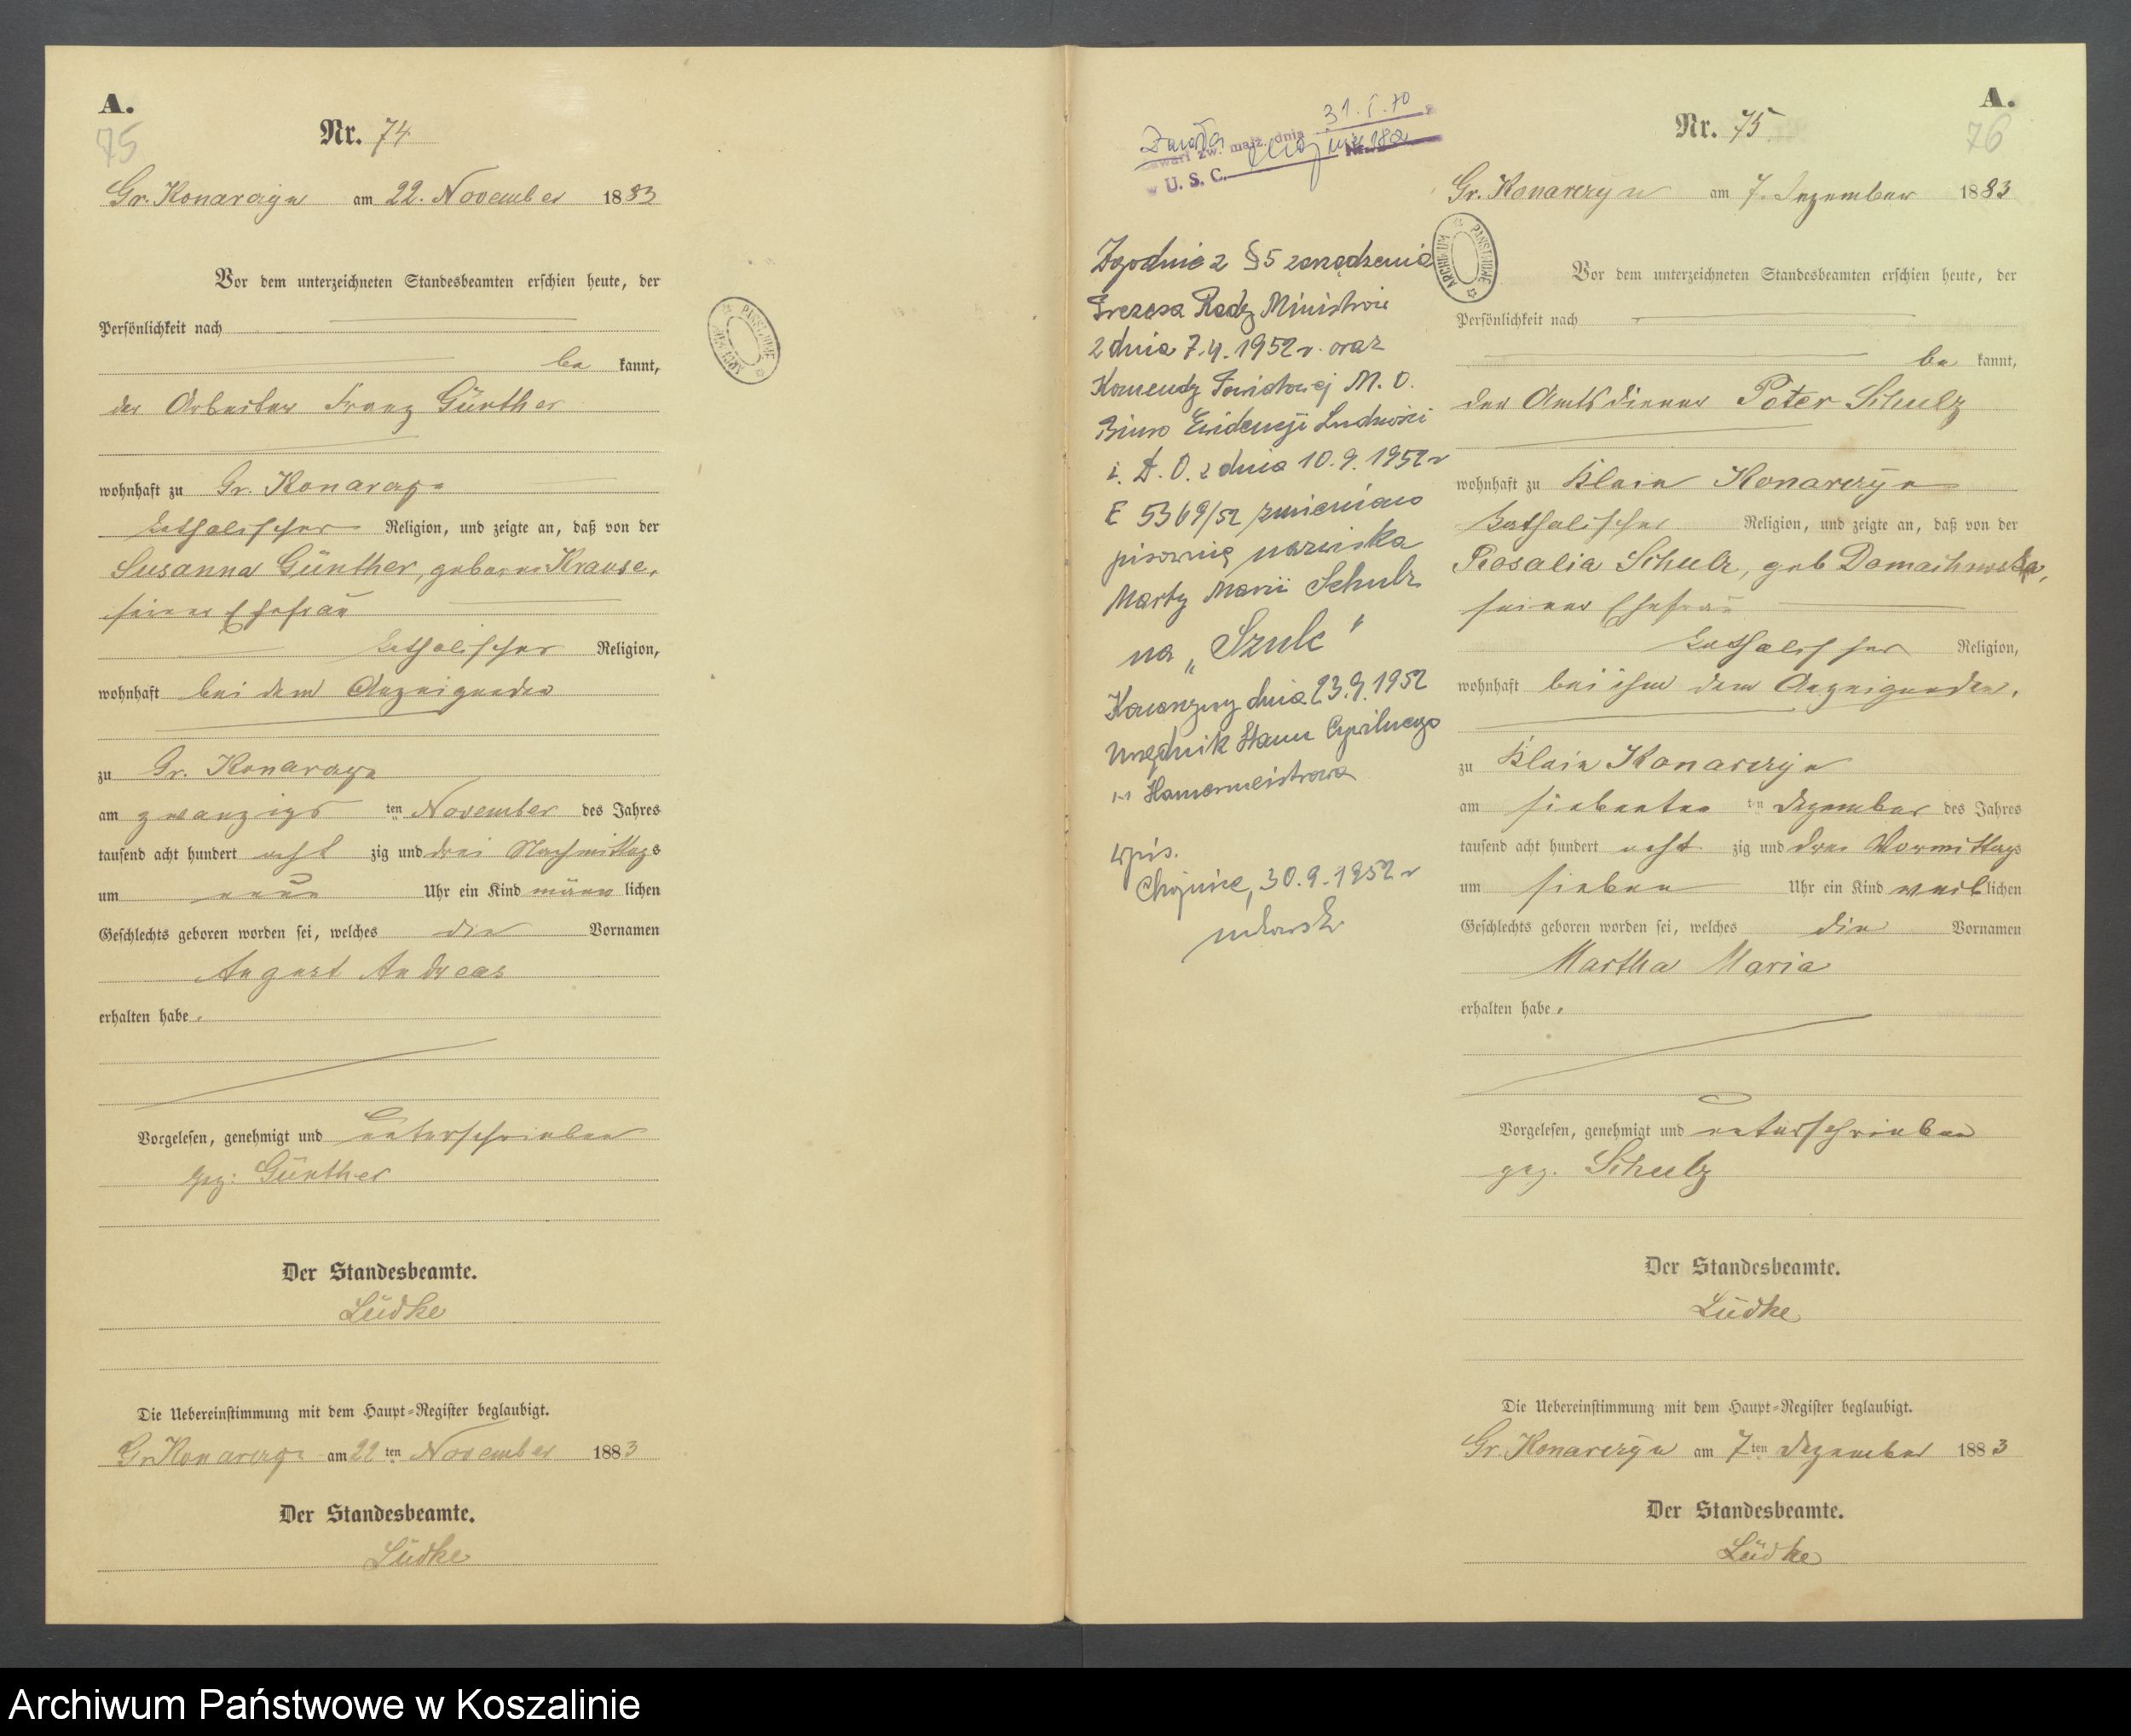 A.
75
Nr. 74
Gr. Konarczyn am 22. November 1883
Vor dem unterzeichneten Standesbeamten erschien heute, der
Persönlichkeit nach
be kannt,
der Arbeiter Franz Günther
wohnhaft zu Gr. Konarczyn
katholischer Religion, und zeigte an, daß von der
Susanna Günther, geborne Krause,
seiner Ehefrau
katholischer Religion,
wohnhaft bei dem Anzeigenden
zu Gr. Konarczyn
am zwanzigs ten November des Jahres
tausend acht hundert acht zig und drei Nachmittags
um neun Uhr ein Kind männ lichen
Geschlechts geboren worden sei, welches die Vornamen
August Andreas
erhalten habe.
Vorgelesen, genehmigt und unterschrieben
gez: Günther
Der Standesbeamte.
Lüdke
Die Uebereinstimmung mit dem Haupt-Register beglaubigt.
Gr. Konarczyn am 22 ten November 1883
Der Standesbeamte.
Lüdke
ARCHIWUM PAŃSTWOWE
31. I. 70
zw. małż. dnia
w U. S. C.
Zgodnie z § 5 zarządzenia
Prezesa Rady Ministrów
z dnia 7.4.1952 r. oraz
Komendy Powiatowej M. O.
Biuro Ewidencji Ludności
i D. O. z dnia 10.9.1952 r
E 5369/52 zmieniono
pisownię nazwiska
Marty Marii Schulz
na „Szulc"
Konarzyny dnia 23.9.1952
Urzędnik Stanu Cywilnego
wpis.
Chojnice, 30.9.1952 r
ARCHIWUM PAŃSTWOWE
A.
76
Nr. 75
Gr. Konarczyn am 7. Dezember 1883
Vor dem unterzeichneten Standesbeamten erschien heute, der
Persönlichkeit nach
be kannt,
der Amtsdiener Peter Schulz
wohnhaft zu Klein Konarczyn
katholischer Religion, und zeigte an, daß von der
Rosalia Schulz, geb Domachowska,
seiner Ehefrau
katholischer Religion,
wohnhaft bei ihm dem Anzeigenden,
zu Klein Konarczyn
am siebenten ten Dezember des Jahres
tausend acht hundert acht zig und drei Vormittags
um sieben Uhr ein Kind weib lichen
Geschlechts geboren worden sei, welches die Vornamen
Martha Maria
erhalten habe.
Vorgelesen, genehmigt und unterschrieben
gez. Schulz
Der Standesbeamte.
Lüdke
Die Uebereinstimmung mit dem Haupt-Register beglaubigt.
Gr. Konarczyn am 7 ten Dezember 1883
Der Standesbeamte.
Lüdke
Archiwum Państwowe w Koszalinie